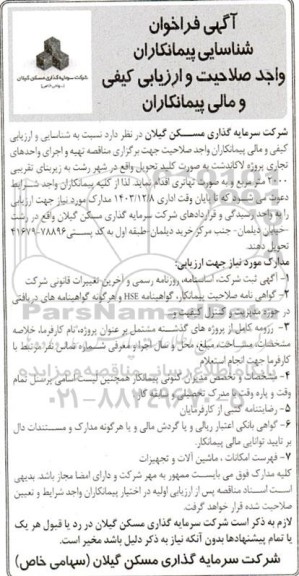 آگهی فراخوان
شناسایی پیمانکاران
واجد صلاحیت و ارزیابی کیفی
و مالی پیمانکاران
شرکت سرمایه گذاری مسکن گیلان
(سهامی خاص)
شرکت سرمایه گذاری مسکن گیلان در نظر دارد نسبت به شناسایی و ارزیابی
کیفی و مالی پیمانکاران واجد صلاحیت جهت برگزاری مناقصه تهیه و اجرای واحدهای
تجاری پروژه لاکاندشت به صورت کلید تحویل واقع در شهر رشت به زیربنای تقریبی
مترمربع و به صورت تهاتری اقدام نماید. لذا از کلیه پیمانکاران واجد شرایط
دعوت می شود که تا پایان وقت اداری ۱۴۰۳/۱۲/۸ مدارک مورد نیاز جهت ارزیابی
را به واحد رسیدگی و قراردادهای شرکت سرمایه گذاری مسکن گیلان واقع در رشت
-خیابان دیلمان- جنب مرکز خرید دیلمان-طبقه اول به کد پستی ۷۸۸۹۶-۴۱۶۷۹
تحویل دهند.
مدارک مورد نیاز جهت ارزیابی:
۱- آگهی ثبت شرکت، اساسنامه، روزنامه رسمی و آخرین تغییرات قانونی شرکت
۲- گواهی نامه صلاحیت پیمانکار، گواهینامه HSE و هرگونه گواهینامه های دریافتی
در حوزه مدیریت و کنترل کیفیت.
۳- رزومه کامل از پروژه های گذشته مشتمل بر عنوان پروژه، نام کارفرما، خلاصه
مشخصات، مساحت، مبلغ، محل و سال اجرا و معرفی شماره تماس نفر مرتبط با
کارفرما جهت انجام استعلام
۴- مشخصات و تخصص مدیران کنونی پیمانکار همچنین لیست اسامی پرسنل تمام
وقت و پاره وقت و مدرک تحصیلی و سابقه کار
۵- رضایتنامه کتبی از کارفرمایان.
۶- گواهی بانکی اعتبار ریالی و یا گردش مالی و یا هرگونه مدارک و مستندات دال
بر تایید توانایی مالی پیمانکار.
۷- فهرست امکانات ، ماشین آلات و تجهیزات
کلیه مدارک فوق می بایست ممهور به مهر شرکت و دارای امضا مجاز باشد. بدیهی
است اسناد مناقصه پس از ارزیابی اولیه در اختیار پیمانکاران واجد شرایط و تعیین
صلاحیت شده قرار خواهد گرفت.
لازم به ذکر است شرکت سرمایه گذاری مسکن گیلان در رد یا قبول هر یک
یا تمام پیشنهادها بدون آنکه نیاز به ذکر دلیل باشد مخیر است.
شرکت سرمایه گذاری مسکن گیلان (سهامی خاص)